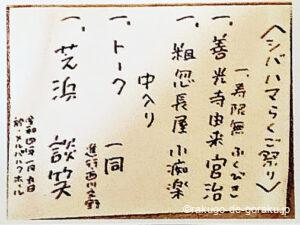 〈シバハマらくご祭り〉
一、寿限無 ふくびき
一、善光寺由来 宮治
一、粗忽長屋 小痴楽
中入り
一、トーク 一同
進行 西川文野
一、芝浜 談笑
令和四年一月九日
於・メルパルクホール
©rakugo-de-goraku.jp